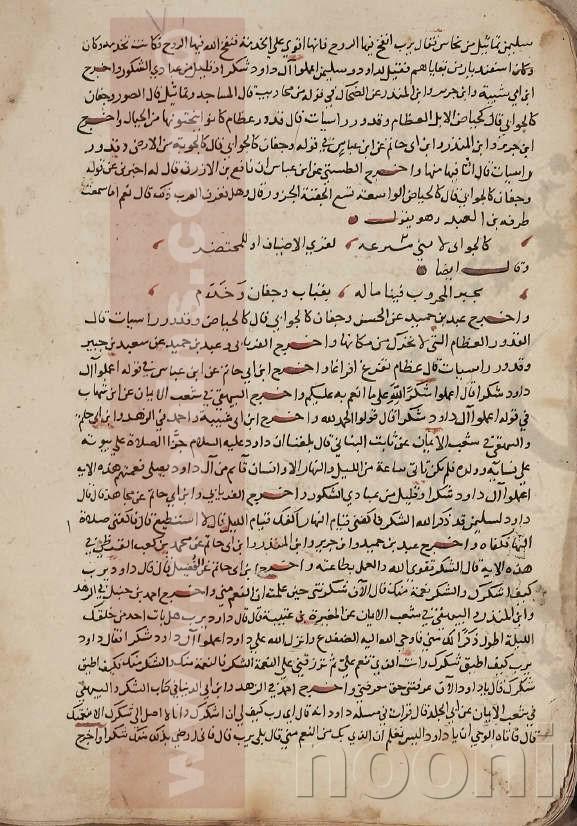 سليمن تماثيل من نحاس فقال يرب انفخ فيها الروح فانها اقوي علي الخدمة فنفخ الله فيها الروح فكانت تخدمه وكان
اسفنديار من بقاياهم فقيل لداود وسليمن اعملوا آل داود شكرا وقليل من عبادي الشكور واخرج
ابن ابي شيبة وابن جرير وابن المنذر عن الضحاك في قوله من محاريب قال المساجد وتماثيل قال الصور وجفان
كالجوابي قال كحياض الابل العظام وقدور راسيات قال قدور عظام كانوا ينحتونها من الجبال واخرج
ابن جرير وابن المنذر وابن ابي حاتم عن ابن عباس في قوله وجفان كالجوابي قال كالجوبة من الارض وقدور
راسيات قال اثافيها منها واخرج الطستي عن ابن عباس ان نافع بن الازرق قال له اخبرني عن قوله
وجفان كالجوابي قال كالحياض الواسعة تسع الجفنة الجزور قال وهل تعرف العرب ذلك قال نعم اما سمعت
طرفة بن العبد وهو يقول
كالجوابي لا تني مترعة لقري الاضياف او للمحتضر
وقال ايضا
يجبر المحروب فينا ماله بقباب وجفان وخدم
واخرج عبد بن حميد عن الحسن وجفان كالجوابي قال كالحياض وقدور راسيات قال
القدور العظام التي لا تحول من مكانها واخرج الفريابي وعبد بن حميد عن سعيد بن جبير
وقدور راسيات قال عظام تفرغ افراغا واخرج ابن ابي حاتم عن ابن عباس في قوله اعملوا آل
داود شكرا قال اعملوا شكر الله علي ما انعم به عليكم واخرج البيهقي في شعب الايمان عن ابن شهاب
في قوله اعملوا آل داود شكرا قال قولوا الحمد لله واخرج ابن ابي شيبة واحمد في الزهد وابن ابي حاتم
والبيهقي في شعب الايمان عن ثابت البناني قال بلغنا ان داود عليه السلام جزا الصلاة علي بيوته
علي نسائه وولده فلم تكن تاتي ساعة من الليل والنهار الا وانسان قائم من آل داود يصلي فعمتهم هذه الاية
اعملوا آل داود شكرا وقليل من عبادي الشكور واخرج الفريابي وابن ابي حاتم عن مجاهد قال قال
داود لسليمن قد ذكر الله الشكر فاكفني قيام النهار اكفك قيام الليل قال لا استطيع قال فاكفني صلاة
النهار فكفاه واخرج عبد بن حميد وابن جرير وابن المنذر وابن ابي حاتم عن محمد بن كعب القرظي في
هذه الاية قال الشكر تقوي الله والعمل بطاعته واخرج ابن ابي حاتم عن الفضيل قال قال داود يرب
كيف اشكرك والشكر نعمة منك قال الآن شكرتني حين علمت ان النعم مني واخرج احمد بن حنبل في الزهد
وابن المنذر والبيهقي في شعب الايمان عن المغيرة بن عتيبة قال قال داود يرب هل بات احد من خلقك
الليلة اطول ذكرا لك مني فاوحي الله اليه الضفدع وانزل الله علي داود اعملوا آل داود شكرا فقال داود
يرب كيف اطيق شكرك وانت الذي تنعم علي ثم ترزقني علي النعمة الشكر فالنعمة منك والشكر منك فكيف اطيق
شكرك قال ياداود الآن عرفتني حق معرفتي واخرج احمد في الزهد وابن ابي الدنيا في كتاب الشكر والبيهقي
في شعب الايمان عن ابي الجلد قال قرات في مسلة داود انه قال اي رب كيف لي ان اشكرك وانا لا اصل الي شكرك الا بنعمتك
قال فاتاه الوحي ان ياداود اليس تعلم ان الذي بك من النعم مني قال بلي يرب قال فاني ارضي بذلك منك شكرا واخرج
nooni